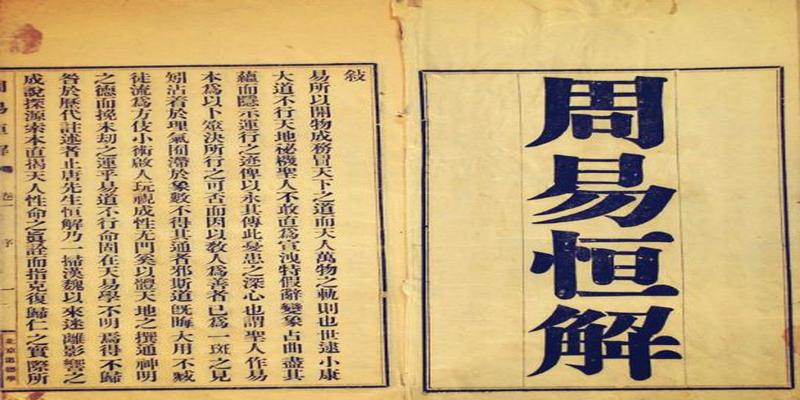 周易恒解
敘
易所以開物成務冒天下之道而天人萬物之軌則也世逮小康
大道不行天地秘機聖人不敢直爲宣洩特假辭變象占曲盡其
蘊而隱示運行之迹俾以永其傳此憂患之深心也謂聖人作易
本爲以卜筮決所行之可否而因以敎人爲善者已爲一斑之見
矧沾着於理氣囿滯於象數不得其通者邪斯道旣晦大用不臧
徒流爲方伎小術啟人玩視成性尤門奚以體天地之撰通神明
之德而挽末刧之運乎易道不行命固在天易學不明爲得不歸
咎於歷代註述者止唐先生恒解乃一掃漢魏以來迷離影響之
成說探源索本直揭天人性命之眞詮而指克復歸仁之實際所
周易恒解
卷一
序
北京道德學